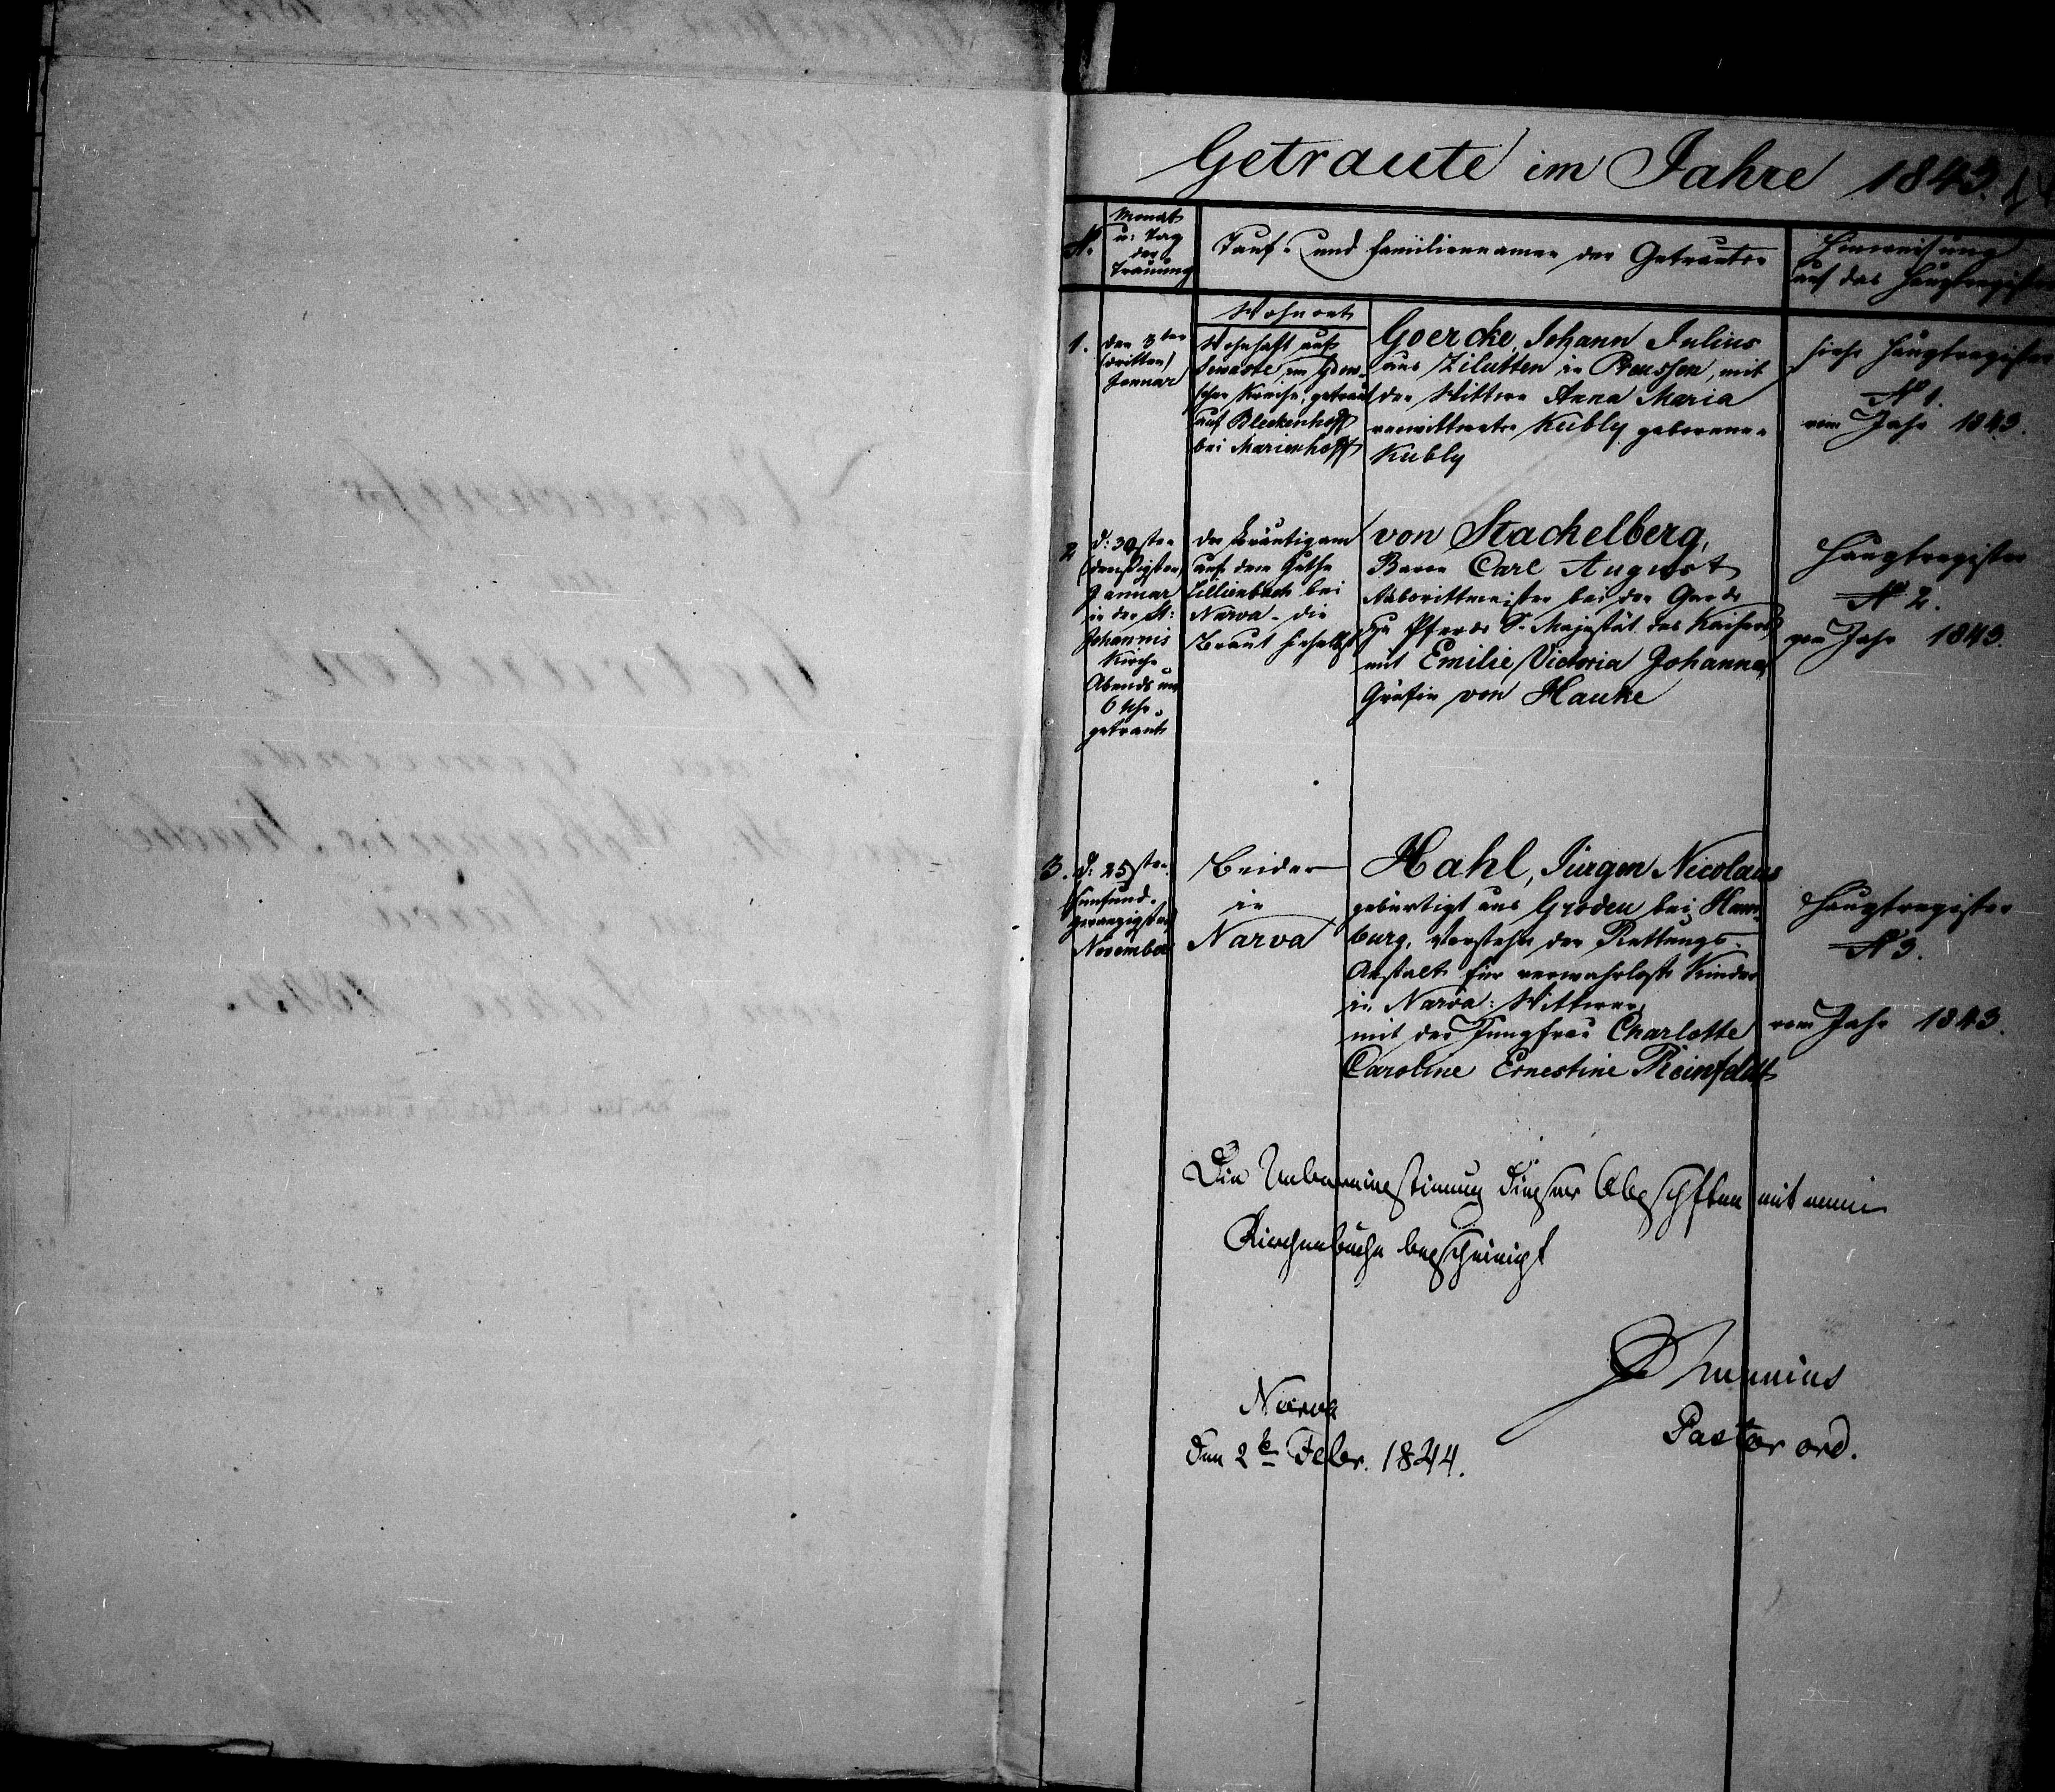 Getraute im Jahre 1843.
N.
Monat
u: Tag
der
Trauung
Tauf- und Familiennamen der Getrauten
Hinweisung
auf das Hauptregister
Wohnort
1.
den 3ten
(dritten)
Januar
Wohnhaft auf
im
schen Kreise, getraut
auf Bleckenhoff
bei Marienhoff
Goercke, Johann Julius
aus Zilutten in Preussen, mit
der Wittwe Anna Maria
verwittwete Kubly geborenen
Kubly
siehe Hauptregister
N 1.
vom Jahr 1843.
2
d: 30sten
(dreißigsten)
Januar
in der St:
Johannis
Kirche
Abends um
6 Uhr
getraut
der Bräutigam
auf dem Guthe
Lilienbach bei
Narva - die
Braut hieselbst
von Stachelberg,
Baron Carl August
Stabsrittmeister bei der Garde
zu Pferde Sr Majestät des Kaisers
mit Emilie Victoria Johanna,
Gräfin von Hauke
Hauptregister
N 2.
vom Jahr 1843.
3.
d: 25sten
(fünfund-
zwanzigsten)
November
Beide
in
Narva
Hahl, Jürgen Nicolaus
gebürtigt aus Groden bei Ham-
burg, Vorsteher der Rettungs-
Anstalt für verwahrloste Kinder
in Narva: Wittwer
mit der Jungfrau Charlotte
Caroline Ernestine Reinfeldt
Hauptregister
N 3.
vom Jahr 1843.
Die Uebereinstimung dieser Abschften mit meine
Kirchenbuche bescheinigt
Hunnius
Pastor ord.
Narva
den 2t Febr. 1844.